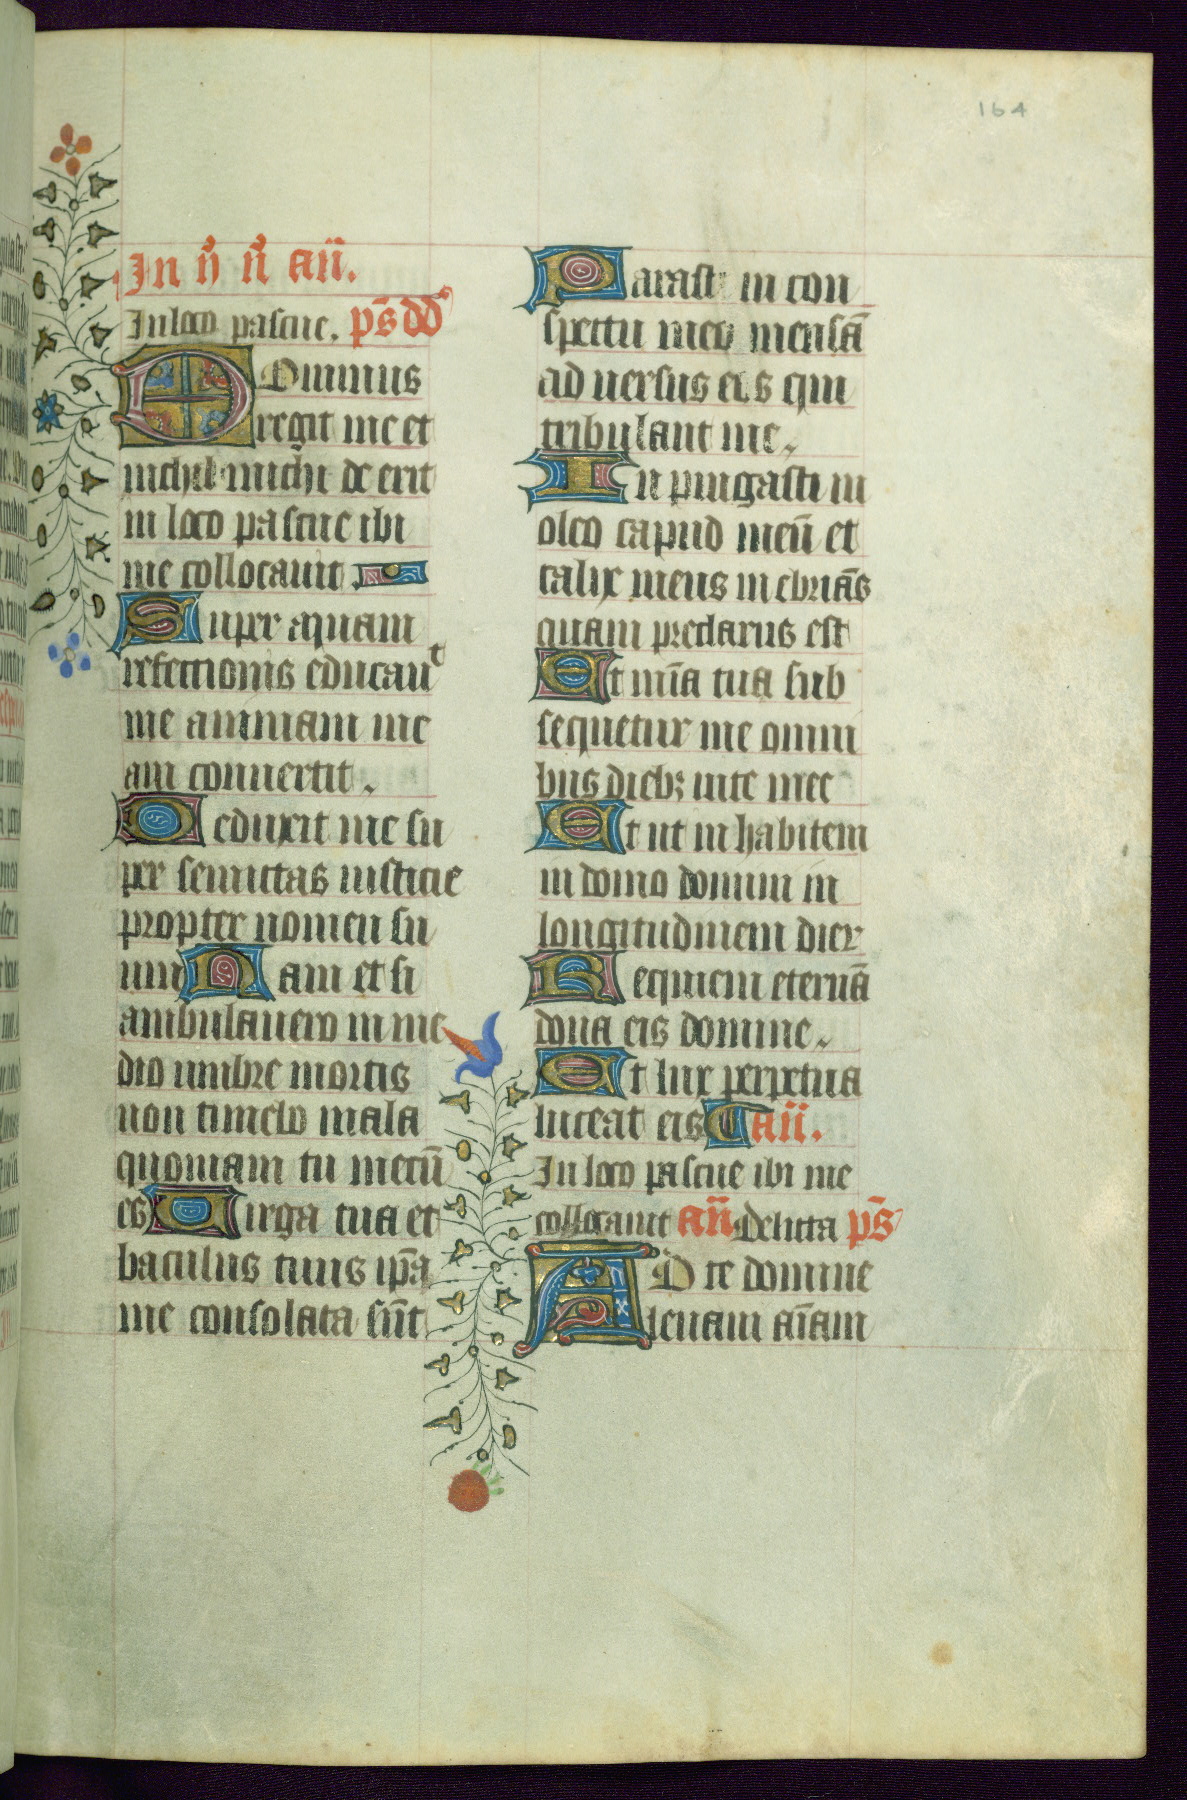 164
In ii n̄ an̄.
In loco pascue. ps̄ dd
Dominus
regit me et
nichil michi de erit
in loco pascue ibi
me collocauit
Super aquam
refectionis educauᵗ
me animam me
am conuertit.
Deduxit me su
per semittas iusticie
propter nomen su
um Nam et si
ambulauero in me
dio umbre mortis
non timebo mala
quoniam tu mecū
es Uirga tua et
baculus tuus ip̄a
me consolata sūt
Parasti in con
spectu meo mensā
ad uersus eos qui
tribulant me.
In pingasti in
oleo capud meū et
calix meus in ebriās
quam preclarus est
Et mīa tua sub
sequetur me omni
bus dieb; uite mee
Et ut in habitem
in domo domini in
longitudinem dier
Requiem eternā
dona eis domine.
Et lux perpetua
luceat eis an̄.
In loco pascue ibi me
collocauit an̄ Delicta ps̄
AD te domine
leuam aīam